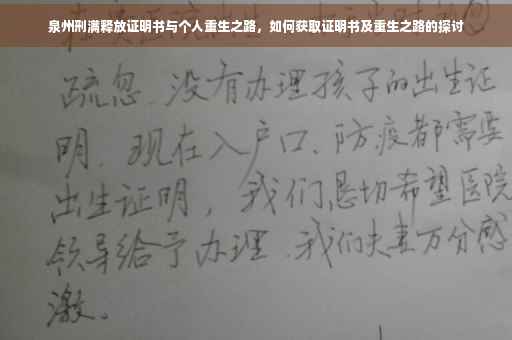 泉州刑满释放证明书与个人重生之路，如何获取证明书及重生之路的探讨
疏忽、没有办理孩子的出生证
明、现在入户口、防疫都需要
出生证明，我们恳切希望医院
领导给予办理、我们夫妻万分感
激。